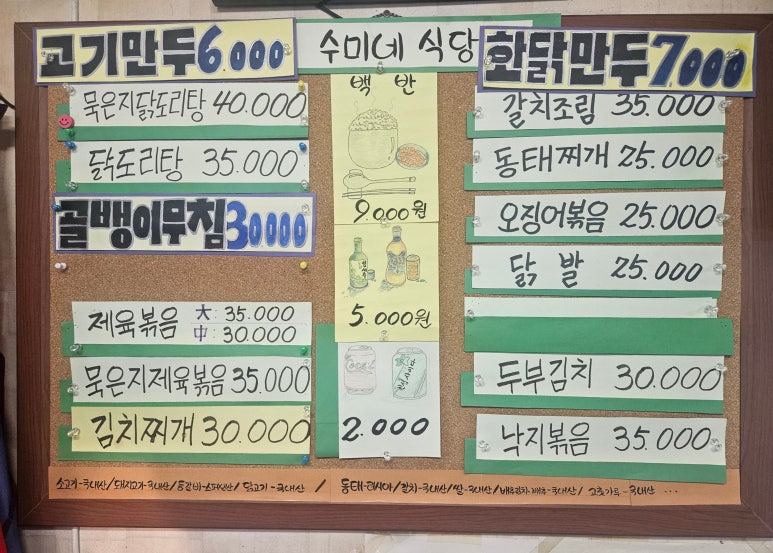 고기만두 6.000
수미네 식당
화닭만두 7.000
묵은지닭도리탕 40.000
닭도리탕 35.000
골뱅이무침 30000
제육볶음 大: 35.000
中: 30.000
묵은지제육볶음 35.000
김치찌개 30.000
백 반
9.000원
5.000원
2.000
갈치조림 35.000
동태찌개 25.000
오징어볶음 25.000
닭 발 25.000
두부김치 30.000
낙지볶음 35.000
소고기-국내산/돼지고기-국내산/등갈비-스페인산/닭고기-국내산 / 동태-러시아/갈치-국내산/쌀-국내산/배추김치-배추-국내산/ 고춧가루-국내산 ...